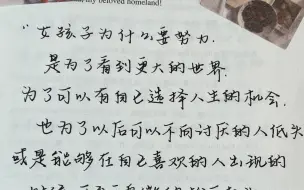 my beloved homeland!
"女孩子为什么要努力.
是为了看到更大的世界.
为了可以有自己选择人生的机会.
也为了以后可以不向讨厌的人低头
或是能够在自己喜欢的人出现的